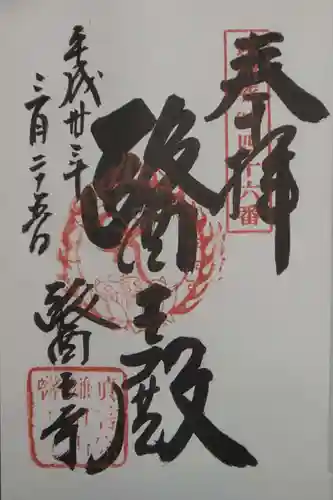 奉拝
四十六番
醫王殿
平成廿三年
三月二十五日
醫王寺